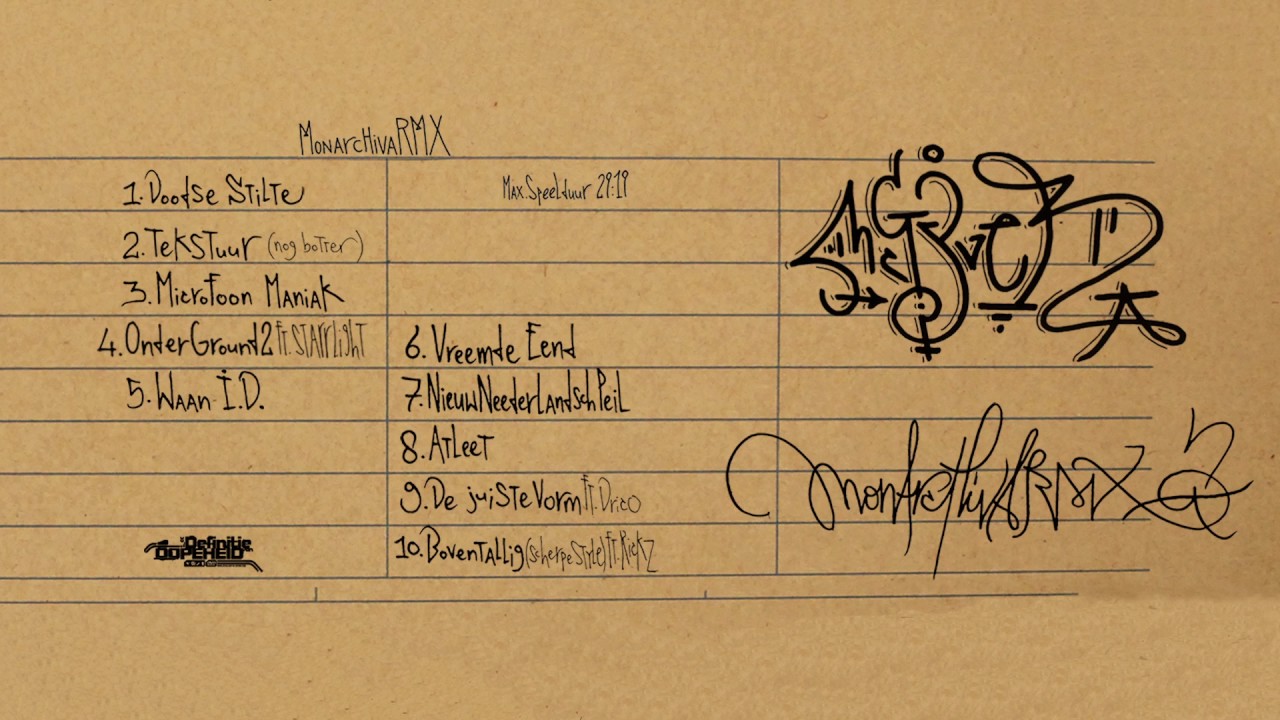 MonarcHivaRMX
1. Doodse Stilte
2. Tekstuur (nog botter)
3. Microfoon Maniak
4. OnderGround2 ft. Starrlight
5. Waan I.D.
Definitie
DOPEHEID
Max. Speelduur 29:19
6. Vreemde Eend
7. NieuwNeederlandschPeil
8. Atleet
9. De juiste Vorm ft. Drico
10. Boventallig (scherpe Style) ft. RickZ
MonarcHivaRMX